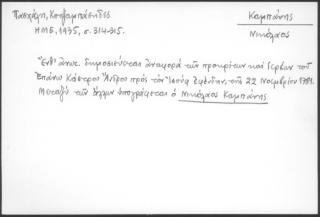 Πασχάλη, Κοτζαμπάσηδες
ΗΜΕ, 1935, σ. 314-315.
Καμπάνης
Νικόλαος
Ἔνθ' ἀνωτ. δημοσιεύεται ἀναφορὰ τῶν προκρίτων καὶ Γερόντων τοῦ
Ἐπάνω Κάστρου Ἄνδρου πρὸς τὸν Ἐφένδην, τῆς 22 Νοεμβρίου
Μεταξὺ τῶν ἄλλων ὑπογράφεται ὁ Νικόλαος Καμπάνης